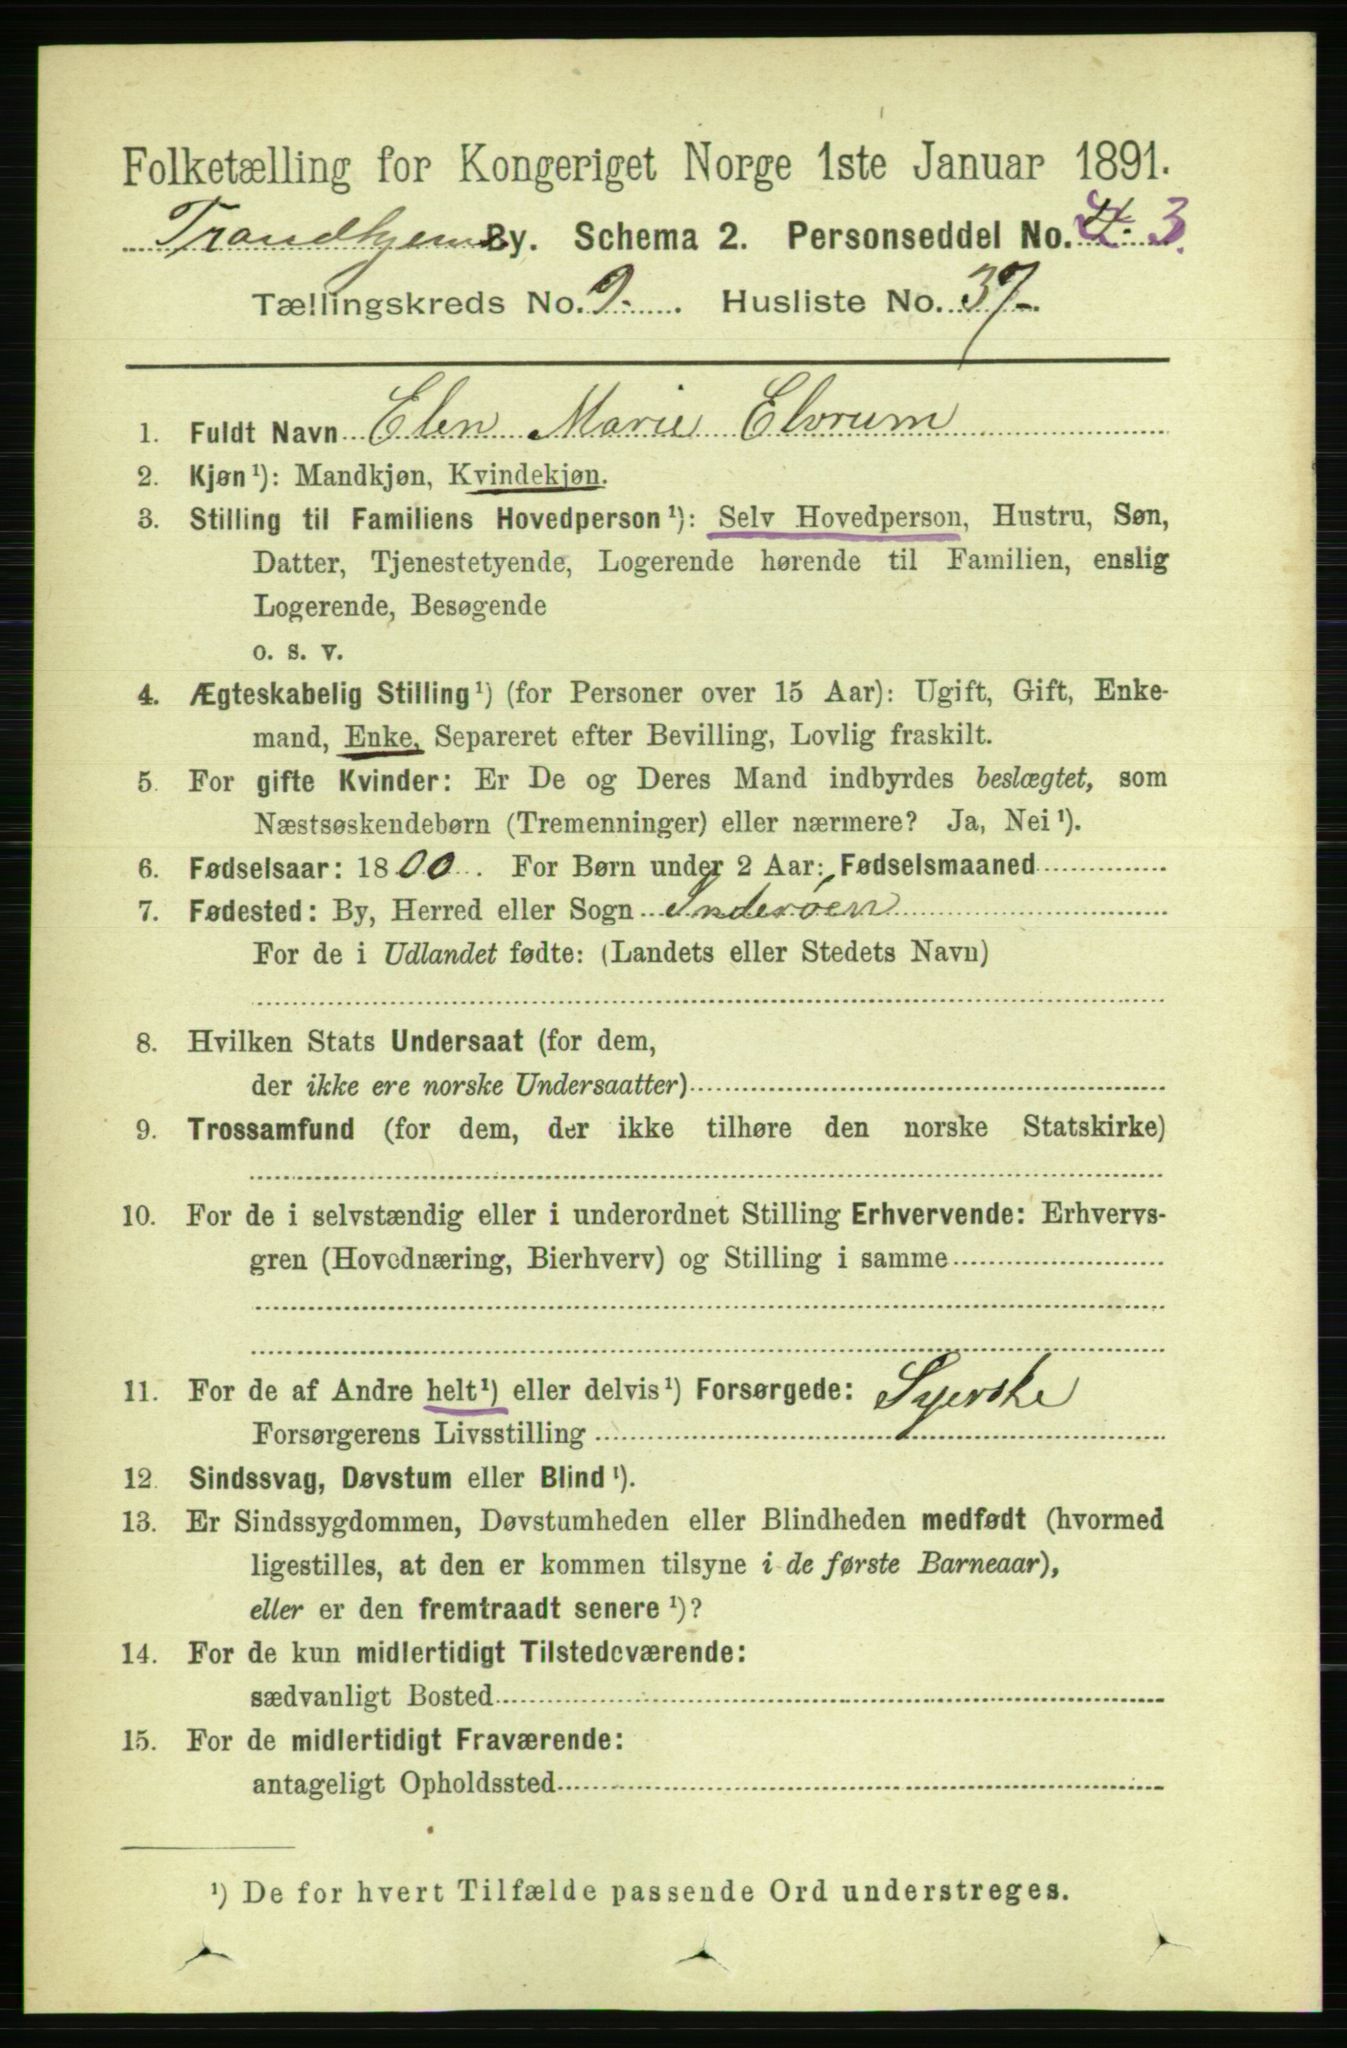 Folketælling for Kongeriget Norge 1ste Januar 1891.
Trondhjems By. Schema 2. Personseddel No. 4. 3.
Tællingskreds No. 9. Husliste No. 37.
1. Fuldt Navn Elen Marie Elvrum
2. Kjøn¹): Mandkjøn, Kvindekjøn.
3. Stilling til Familiens Hovedperson¹): Selv Hovedperson, Hustru, Søn,
Datter, Tjenestetyende, Logerende hørende til Familien, enslig
Logerende, Besøgende
o. s. v.
4. Ægteskabelig Stilling¹) (for Personer over 15 Aar): Ugift, Gift, Enke-
mand, Enke, Separeret efter Bevilling, Lovlig fraskilt.
5. For gifte Kvinder: Er De og Deres Mand indbyrdes beslægtet, som
Næstsøskendebørn (Tremenninger) eller nærmere? Ja, Nei¹).
6. Fødselsaar: 1800. For Børn under 2 Aar: Fødselsmaaned
7. Fødested: By, Herred eller Sogn Inderøen
For de i Udlandet fødte: (Landets eller Stedets Navn)
8. Hvilken Stats Undersaat (for dem,
der ikke ere norske Undersaatter)
9. Trossamfund (for dem, der ikke tilhøre den norske Statskirke)
10. For de i selvstændig eller i underordnet Stilling Erhvervende: Erhvervs-
gren (Hovednæring, Bierhverv) og Stilling i samme
11. For de af Andre helt¹) eller delvis¹) Forsørgede: Syerske
Forsørgerens Livsstilling
12. Sindssvag, Døvstum eller Blind¹).
13. Er Sindssygdommen, Døvstumheden eller Blindheden medfødt (hvormed
ligestilles, at den er kommen tilsyne i de første Barneaar),
eller er den fremtraadt senere¹)?
14. For de kun midlertidigt Tilstedeværende:
sædvanligt Bosted
15. For de midlertidigt Fraværende:
antageligt Opholdssted
¹) De for hvert Tilfælde passende Ord understreges.